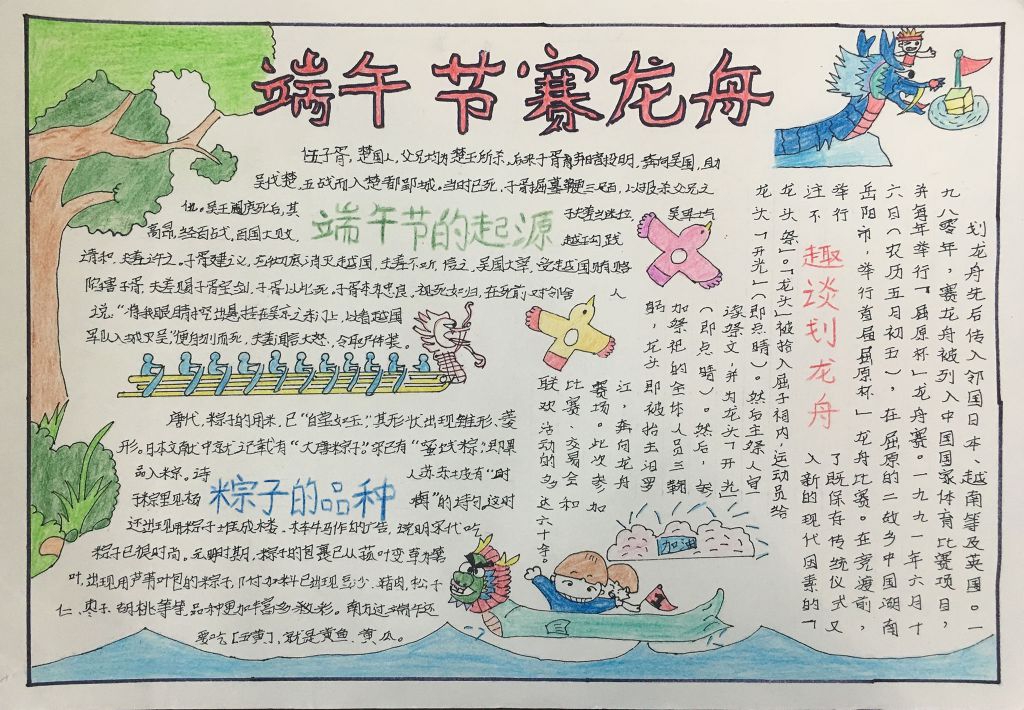 端午节赛龙舟
伍子胥，楚国人，父兄均为楚王所杀，后来子胥弃暗投明，奔向吴国，助
吴伐楚，五战而入楚都郢城。当时已死，子胥掘墓鞭三百，以报杀父兄之
仇。吴王阖庐死后，其
高昂，经百战，百国大败，
端午节的起源
越王勾践
请和，夫差许之。子胥建议，应彻底消灭越国，夫差不听，信之，吴国大宰，受越国贿赂
陷害子胥，夫差赐子胥宝剑，子胥以此死。子胥本忠良，视死如归，在死前对邻舍
人
说："将我眼睛挖出悬挂在吴京之东门上，以看越国
军队入城灭吴"便自刎而死，夫差闻言大怒，令取
唐代，粽子的用米，已"白莹如玉"，其形状出现锥形、菱
形。日本文献中就记载有"大唐粽子"。宋已有"蜜饯粽"，即果
品入粽。诗
人苏东坡有"时
于粽里见杨
粽子的品种
梅"的诗句。这时
还出现用粽子
的广告，说明宋代吃
粽子已很时尚。元明时期，粽子的包裹已从菰叶变革为箬
叶，出现用芦苇叶包的粽子，附加料已出现豆沙、猪肉、松子
仁、枣子、胡桃等等，品种更加丰富多彩。南方过端午还
要吃【五黄】，就是黄鱼、黄瓜。
趣谈划龙舟
划龙舟先后传入邻国日本、越南等及英国。一
九八零年，赛龙舟被列入中国国家体育比赛项目，
并每年举行「屈原杯」龙舟赛。一九九一年六月十
六日（农历五月初五），在屈原的二故乡中国湖南
岳阳市，举行首届屈原杯」龙舟比赛。在竞渡前，
举行
了既保存传统仪式又
注不
入新的现代因素的「
龙头祭」。「龙头」被抬入屈子祠内，运动员给
龙头「开光」（即点睛）。然后主祭人宣
读祭文，并为龙头「开光」
（即点睛）。然后，参
加祭祀的全体人员三鞠
躬，龙头即被抬去汨罗
江，奔向龙舟
赛场。此次参加
比赛、交易会和
联欢活动的多达六十余
加油